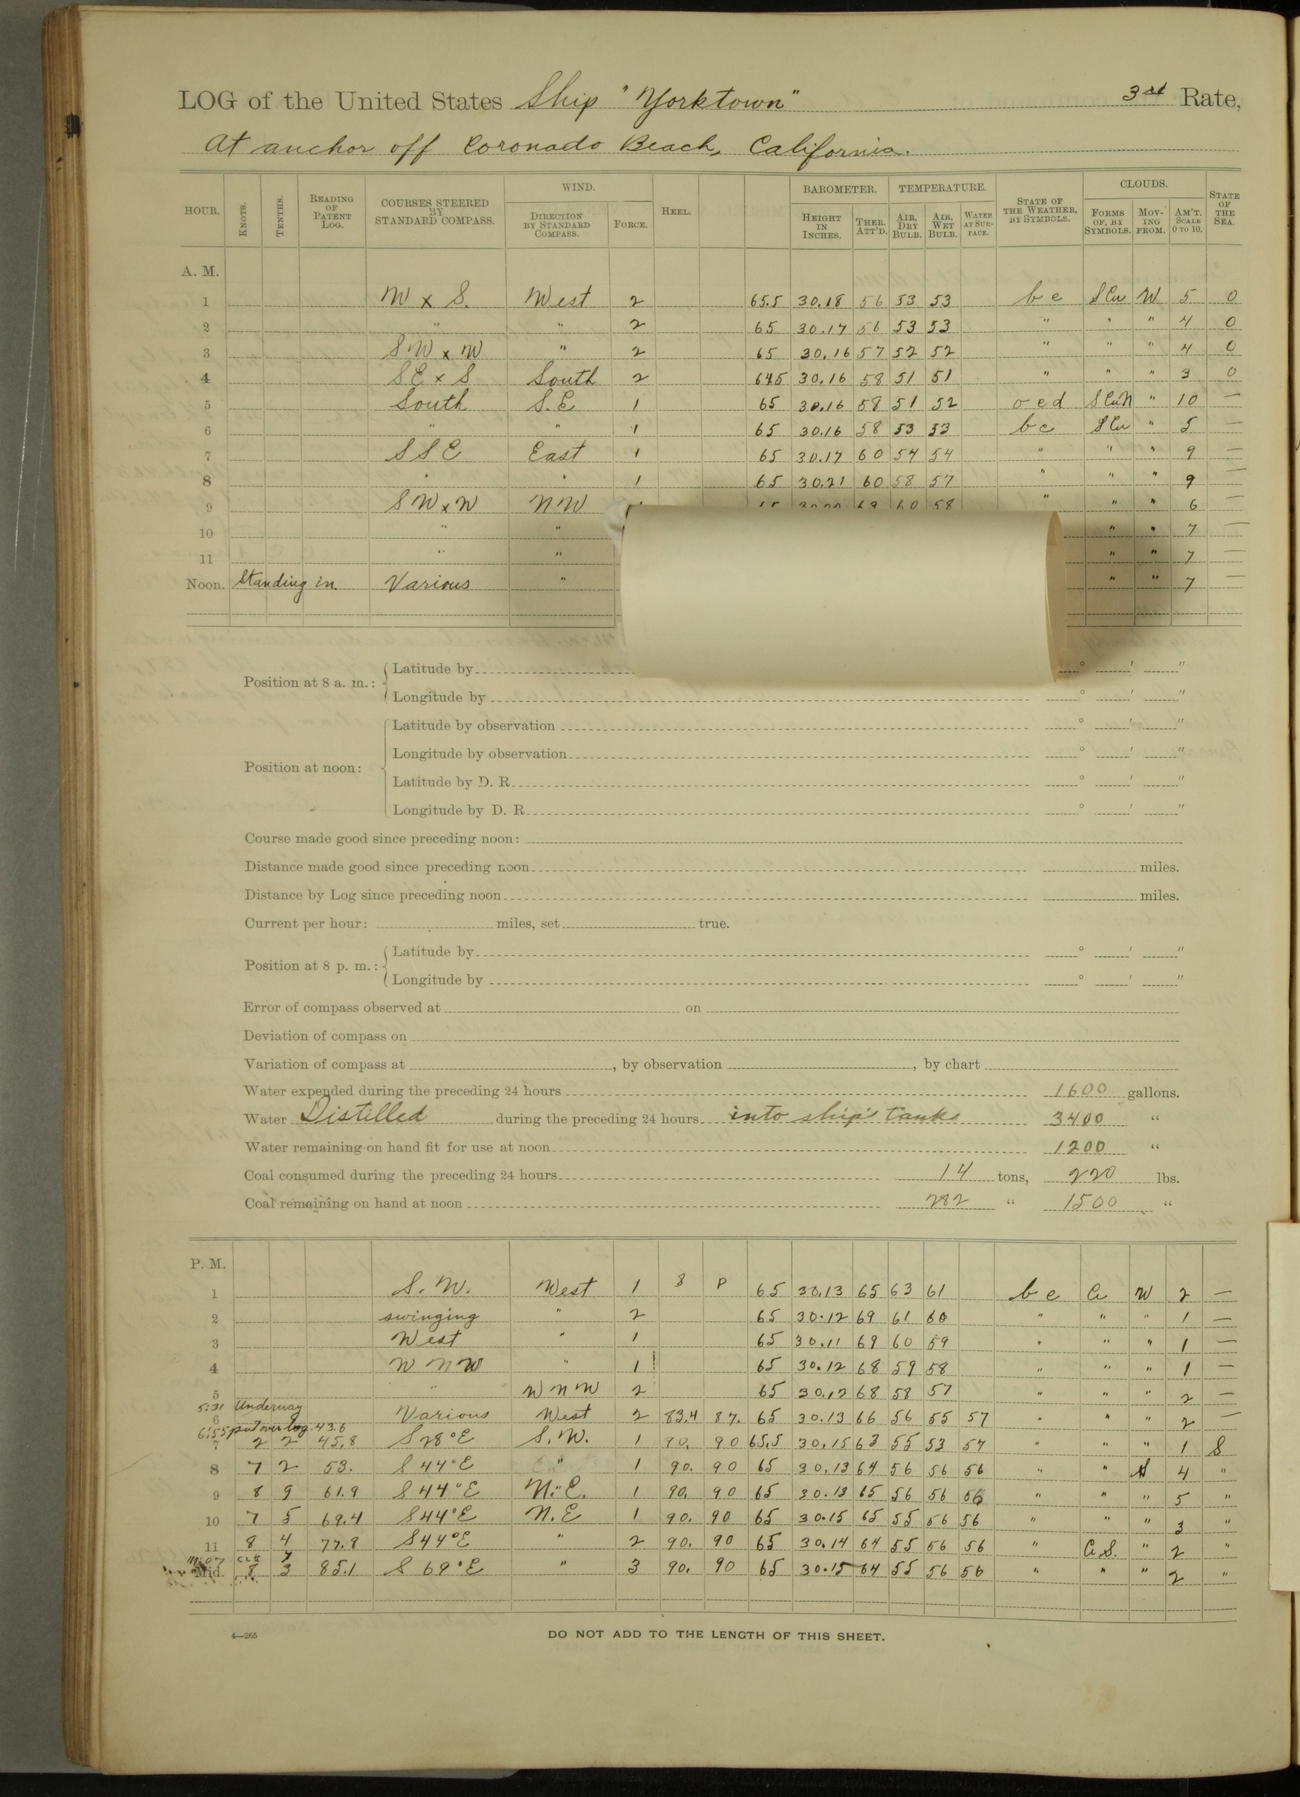 LOG of the United States Ship "Yorktown" 3rd Rate,
At anchor off Coronado Beach, California.
HOUR. KNOTS. TENTHS. READING OF PATENT LOG. COURSES STEERED BY STANDARD COMPASS. WIND. DIRECTION BY STANDARD COMPASS. FORCE. HEEL. BAROMETER. HEIGHT IN INCHES. THER. ATT'D. TEMPERATURE. AIR, DRY BULB. AIR, WET BULB. WATER AT SURFACE. STATE OF THE WEATHER, BY SYMBOLS. CLOUDS. FORMS OF, BY SYMBOLS. MOVING FROM. AM'T. SCALE 0 TO 10. STATE OF THE SEA.
A. M.
1 W x S. West 2 65.5 30.18 56 53 53 b c S Cu W 5 0
2 " " 2 65 30.17 56 53 53 " " " 4 0
3 S.W x W " 2 65 30.16 57 52 52 " " " 4 0
4 SE x S South 2 64.5 30.16 58 51 51 " " " 3 0
5 South S.E 1 65 30.16 58 51 52 o c d S Cu N " 10 —
6 " " 1 65 30.16 58 53 53 b c S Cu " 5 —
7 SSE East 1 65 30.17 60 54 54 " " " 9 —
8 " " 1 65 30.21 60 58 57 " " " 9 —
9 SW x W NW 58 " " " 6 —
10 " " " " 7 —
11 " " " " 7 —
Noon. Standing in. Various " " " 7 —
Position at 8 a. m.: Latitude by ° ' "
Longitude by ° ' "
Position at noon: Latitude by observation ° ' "
Longitude by observation ° ' "
Latitude by D. R. ° ' "
Longitude by D. R. ° ' "
Course made good since preceding noon:
Distance made good since preceding noon miles.
Distance by Log since preceding noon miles.
Current per hour: miles, set true.
Position at 8 p. m.: Latitude by ° ' "
Longitude by ° ' "
Error of compass observed at on
Deviation of compass on
Variation of compass at , by observation , by chart
Water expended during the preceding 24 hours 1600 gallons.
Water Distilled during the preceding 24 hours into ship's tanks 3400 "
Water remaining on hand fit for use at noon 1200 "
Coal consumed during the preceding 24 hours 14 tons, 220 lbs.
Coal remaining on hand at noon 282 " 1500 "
P. M.
1 S. W. West 1 S P 65 30.13 65 63 61 b c Ci W 2 —
2 swinging " 2 65 30.12 69 61 60 " " " 1 —
3 West " 1 65 30.11 69 60 59 " " " 1 —
4 W N W " 1 65 30.12 68 59 58 " " " 1 —
5 " W N W 2 65 30.12 68 58 57 " " " 2 —
5:31 Underway
6 Various West 2 83.4 87. 65 30.13 66 56 55 57 " " " 2 —
6:55 put over log 43.6
7 2 2 45.8 S 28° E S. W. 1 90. 90 65.5 30.15 63 55 53 57 " " " 1 S
8 7 2 53. S 44° E " 1 90. 90 65 30.13 64 56 56 56 " " 4 "
9 8 9 61.9 S 44° E N. E. 1 90. 90 65 30.13 65 56 56 56 " " " 5 "
10 7 5 69.4 S 44° E N. E 1 90. 90 65 30.15 65 55 56 56 " " " 3 "
11 8 4 77.8 S 44° E " 2 90. 90 65 30.14 64 55 56 56 " C S. " 2 "
Mid. 3 85.1 S 69° E " 3 90. 90 65 30.15 64 55 56 56 " " " 2 "
4—265
DO NOT ADD TO THE LENGTH OF THIS SHEET.